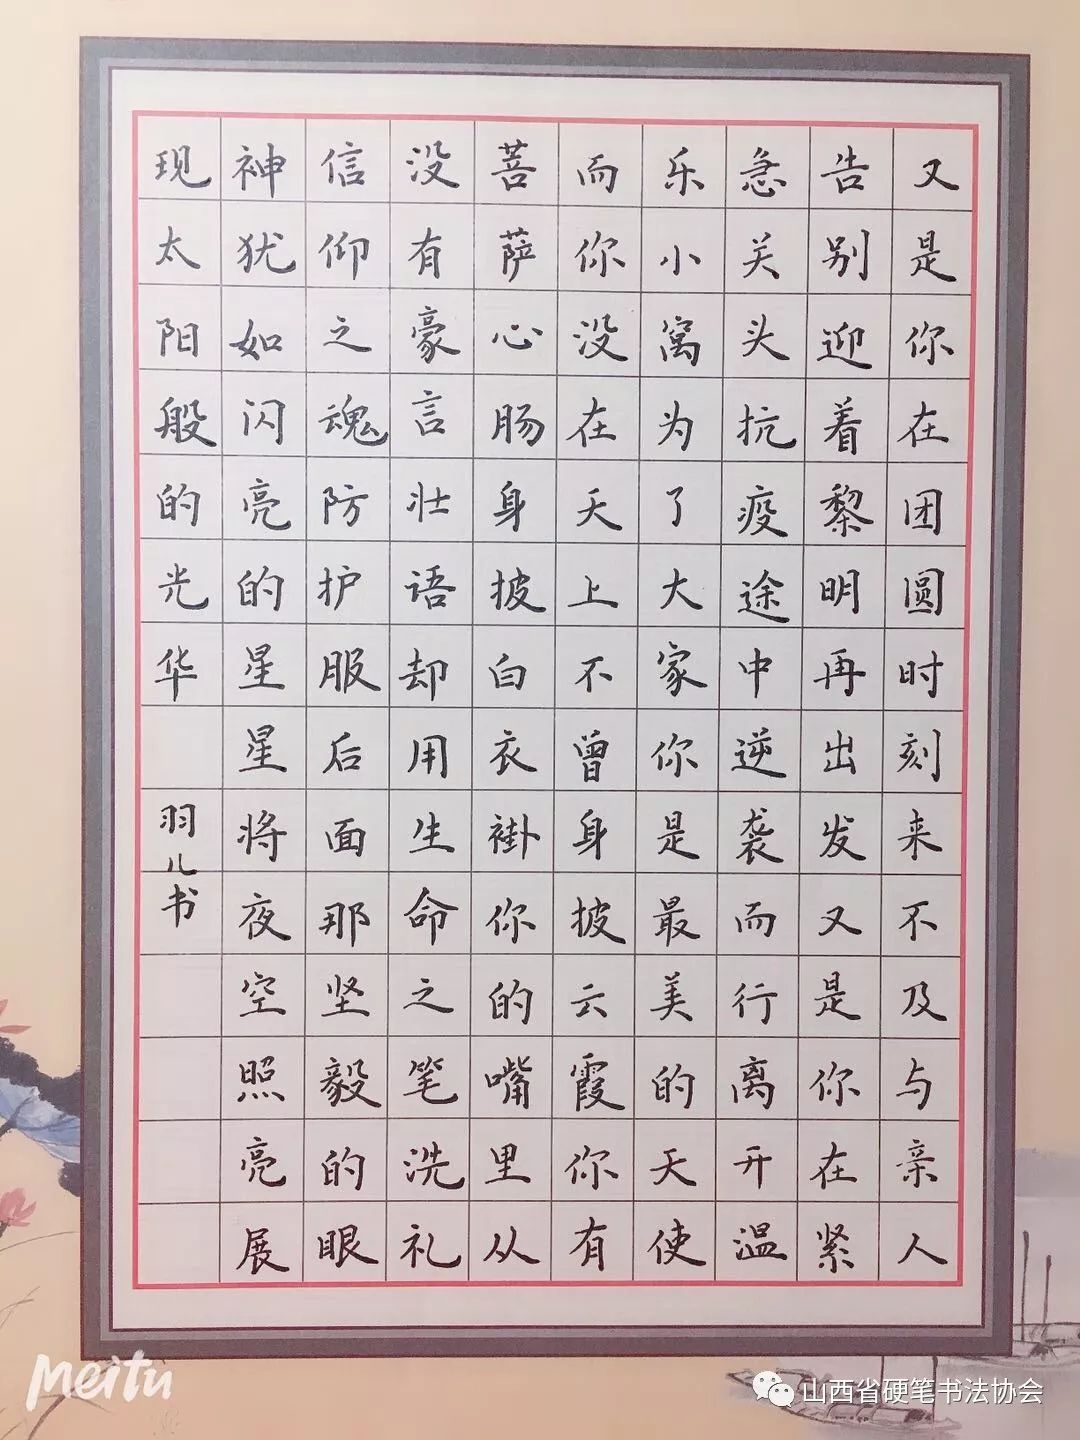 又是你在团圆时刻来不及与亲人
告别迎着黎明再出发又是你在紧
急关头抗疫途中逆袭而行离开温
乐小窝为了大家你是最美的天使
而你没在天上不曾身披云霞你有
菩萨心肠身披白衣褂你的嘴里从
没有豪言壮语却用生命之笔洗礼
信仰之魂防护服后面那坚毅的眼
神犹如闪亮的星星将夜空照亮展
现太阳般的光华
羽儿书
meitu
山西省硬笔书法协会